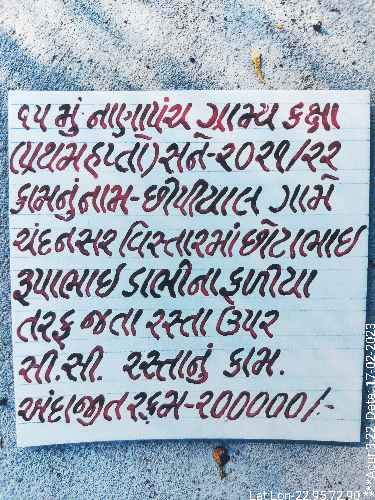 ૧૫ મું નાણાપંચ ગ્રામ્ય કક્ષા
(પ્રથમ હપ્તો) સને-૨૦૨૧/૨૨
કામનું નામ-છીપીયાલ ગામે
ચંદનસર વિસ્તારમાં છોટાભાઇ
રૂપાભાઇ ડાભીના ફળીયા
તરફ જતા રસ્તા ઉપર
સી.સી. રસ્તાનું કામ.
અંદાજીત રકમ-૨૦૦૦૦૦/-
Lat Lon-22.95 72.90 ***Acur:3.22, Date: 17-02-2023